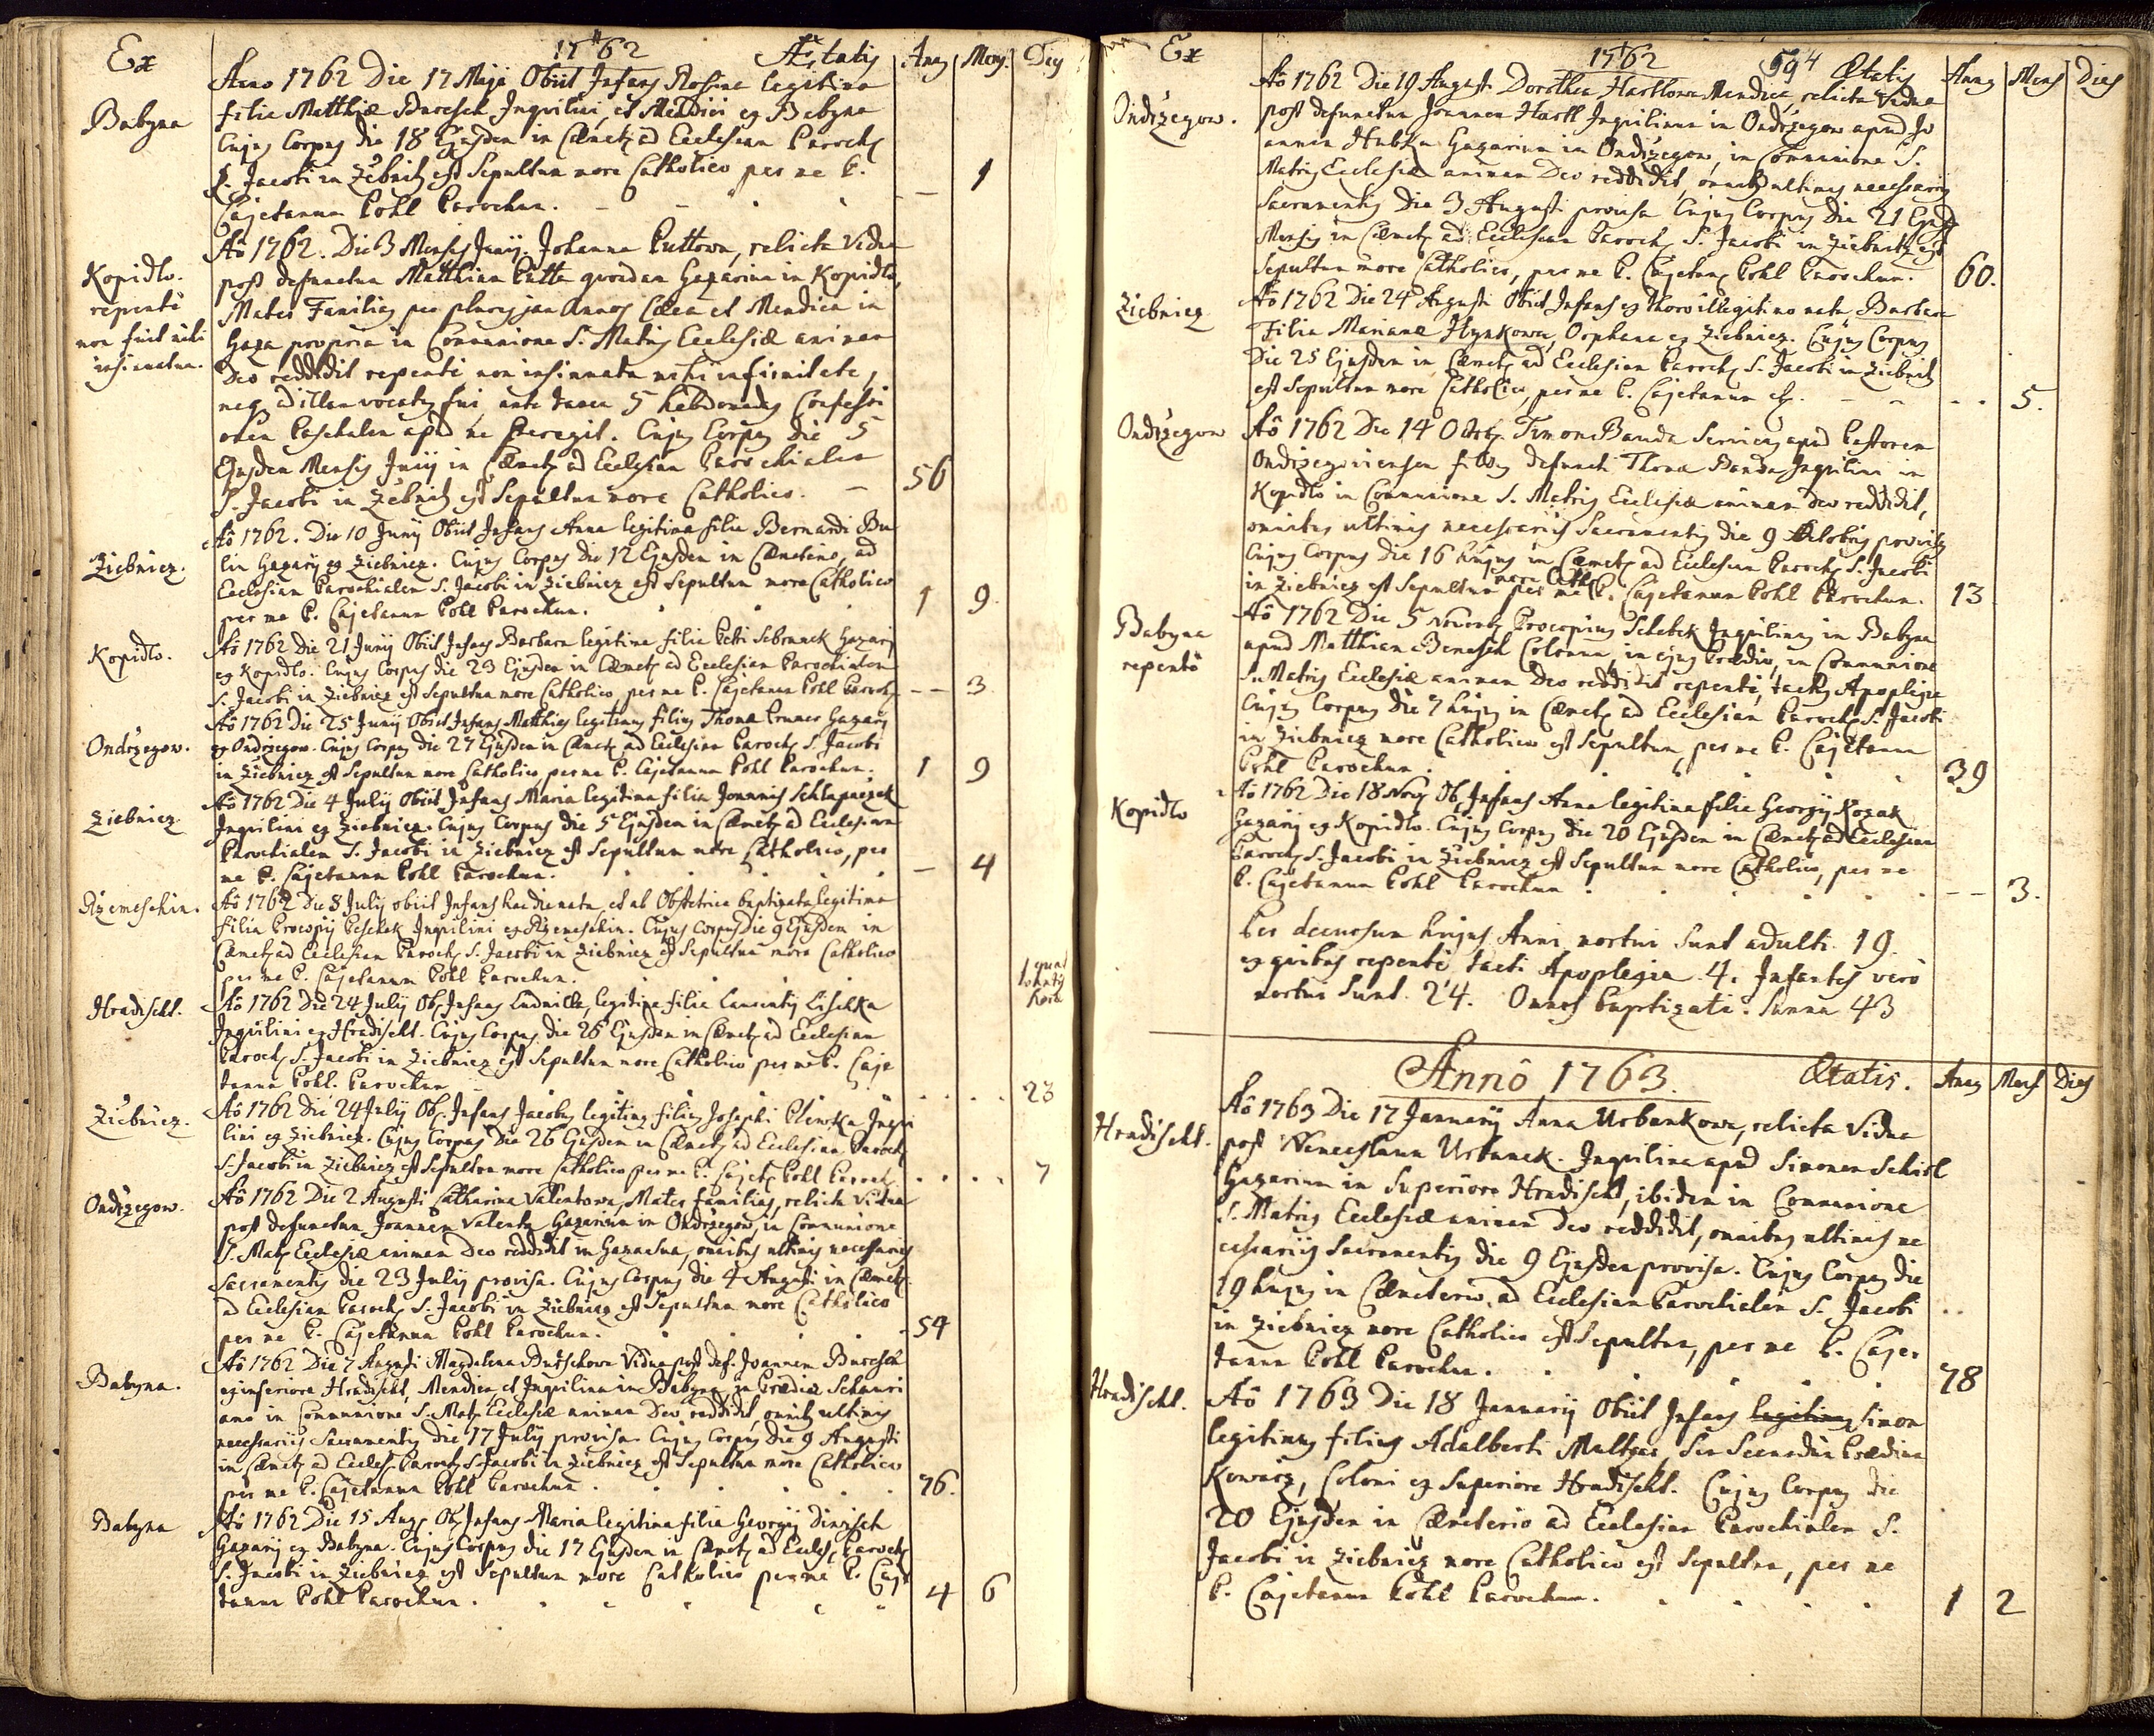 Ex
1762
Ætatis
Ann
Mens
Dies
Babyna
Anno 1762 Die 17 Maji Obiit Infans Rosina legitima
filia Matthiæ Buresch Inquilini, et Mendici ex Babyna
Cujus Corpus die 18 Ejusdem in Cæmet. ad Ecclesiam Paroch.
S. Jacobi in Zebnicz est Sepultum more Catholico per me P.
Cajetanum Pohl Parochum. — 1
Kopidlo.
repentè
non fuit mihi
insinuatum.
Aô 1762. Die 3 Mensis Junij Johanna Puttowa, relicta Vidua
post defunctum Matthiam Putta quondam Gazarium in Kopidlo,
Mater Familias per plures jam Annos Cæca et Mendica in
Gaza propria in Communione S. Matris Ecclesiæ animam
Deo reddidit repentè non insinuata mihi infirmitate,
neq. ad illam vocatus fui, ante tamen 5 hebdomadas Confessi
onem Paschalem apud me Peregit. Cujus Corpus die 5
Ejusdem Mensis Junij in Cæmet. ad Ecclesiam Parochialem
S. Jacobi in Zebnicz est Sepultum more Catholico. — 56
Ziebnicz.
Aô 1762. Die 10 Junij Obiit Infans Anna legitima filia Bernardi Bu
lin Gazarij ex Ziebnicz. Cujus Corpus die 12 Ejusdem in Cæmeterio, ad
Ecclesiam Parochialem S. Jacobi in Ziebnicz est Sepultum more Catholico
per me P. Cajetanum Pohl Parochum. 1 9
Kopidlo.
Aô 1762 Die 21 Junij Obiit Infans Barbara legitima filia Petri Sebranek Gazarij
ex Kopidlo. Cujus Corpus die 23 Ejusdem in Cæmet. ad Ecclesiam Parochialem
S. Jacobi in Ziebnicz est Sepultum more Catholico per me P. Cajetanum Pohl Paroch. — — 3
Ondrzegow.
Aô 1762 Die 25 Junij Obiit Infans Matthias legitimus filius Thomæ Cruner Gazarij
ex Ondrzegow. Cujus Corpus die 27 Ejusdem in Cæmet. ad Ecclesiam Paroch. S. Jacobi
in Ziebnicz est Sepultum more Catholico per me P. Cajetanum Pohl Parochum. 1 9
Ziebnicz.
Aô 1762 Die 4 Julij Obiit Infans Maria legitima filia Joannis Schlapaczek
Inquilini ex Ziebnicz. Cujus Corpus die 5 Ejusdem in Cæmet. ad Ecclesiam
Parochialem S. Jacobi in Ziebnicz est Sepultum more Catholico, per
me P. Cajetanum Pohl Parochum. — 4
Rzemeschin.
Aô 1762 Die 8 Julij obiit Infans hac die nata, et ab Obstetrice baptizata legitima
filia Procopij Peschek Inquilini ex Rzemeschin. Cujus Corpus die 9 Ejusdem in
Cæmet. ad Ecclesiam Paroch. S. Jacobi in Ziebnicz est Sepultum more Catholico
per me P. Cajetanum Pohl Parochum.
Hradischt.
Aô 1762 Die 24 Julij Ob. Infans Ludmilla, legitima filia Laurentij Lischka
Inquilini ex Hradischt. Cujus Corpus die 26 Ejusdem in Cæmet. ad Ecclesiam
Paroch. S. Jacobi in Ziebnicz est Sepultum more Catholico per me P. Caje
tanum Pohl. Parochum 23
Ziebnicz.
Aô 1762 die 24 Julij Ob. Infans Jacobus legitimus filius Josephi Inqui
lini ex Ziebnicz. Cujus Corpus die 26 Ejusdem in Cæmet. ad Ecclesiam Paroch.
S. Jacobi in Ziebnicz est Sepultum more Catholico per me P. Cajet. Pohl Paroch. 7
Ondrzegow.
Aô 1762 Die 2 Augusti Catharina Valentowa, Mater familias, relicta Vidua
post defunctum Joannem Valenta Gazarium in Ondrzegow, in Communione
S. Mat. Ecclesiæ animam Deo reddidit in Gaza sua, omnibus ultimis necessarijs
Sacramentis die 23 Julij provisa. Cujus Corpus die 4 Augusti in Cæmet.
ad Ecclesiam Paroch. S. Jacobi in Ziebnicz est Sepultum more Catholico
per me P. Cajetanum Pohl Parochum. 54
Babyna.
Aô 1762 Die 7 Augusti Magdalena Vidua post def. Joannem Buresch
ex inferiore Hradischt, Mendica, et Inquilina in Babyna in Prædio
in Communione S. Mat. Ecclesiæ animam Deo reddidit, omnib. ultimis
necessarijs Sacramentis die 17 Julij provisa. Cujus Corpus die 9 Augusti
in Cæmet. ad Eccles. Paroch. S. Jacobi in Ziebnicz est Sepultum more Catholico
per me P. Cajetanum Pohl Parochum. 76.
Babyna
Aô 1762 Die 15 Aug. Ob. Infans Maria legitima filia Georgij
Gazarij ex Babyna. Cujus Corpus die 17 Ejusdem in Cæmet. ad Eccles. Paroch.
S. Jacobi in Ziebnicz est Sepultum more Catholico per me P. Caje
tanum Pohl Parochum. 4 6
Ex
1762
594
Ætatis
Anni
Mens
Dies
Ondrzegow.
Aô 1762 Die 19 August. Dorothea Hartlowa Mendica, relicta Vidua
post defunctum Joannem Hartl Inquilinum in Ondrzegow apud Jo
annem Hubka Gazarium in Ondrzegow, in Communione S.
Matris Ecclesiæ animam Deo reddidit, omnib. ultimis necessarijs
Sacramentis die 3 Augusti provisa Cujus Corpus die 21 Ejusd.
Mensis in Cæmet. ad Ecclesiam Paroch. S. Jacobi in Ziebnicz est
Sepultum more Catholico, per me P. Cajetanum Pohl Parochum. 60.
Ziebnicz
Aô 1762 Die 24 Augusti Obiit Infans ex thoro illegitimo nata, Barbara
Filia Marianæ Hynkowa, Orphana ex Ziebnicz. Cujus Corpus
Die 25 Ejusdem in Cæmet. ad Ecclesiam Paroch. S. Jacobi in Ziebnicz
est Sepultum more Catholico, per me P. Cajetanum 5.
Ondrzegow
Aô 1762 Die 14 Octob. Simon Banda Serviens apud Pastorem
Ondrzegoviensem filius defuncti Thomæ Banda Inquilini in
Kopidlo in Communione S. Matris Ecclesiæ animam Deo reddidit,
omnibus ultimis necessarijs Sacramentis die 9 Octobris provisus
Cujus Corpus die 16 hujus in Cæmet. ad Ecclesiam Paroch. S. Jacobi
in Ziebnicz est Sepultum more Cath. per me P. Cajetanum Pohl Parochum. 13
Babyna
repentè
Aô 1762 Die 5 Novemb. Procopius Schebek Inquilinus in Babyna
apud Matthiam Benesch Colonum, in ejus Prædio, in Communione
S. Matris Ecclesiæ animam Deo reddidit repentè, tactus Apoplegia
Cujus Corpus die 7 hujus in Cæmet. ad Ecclesiam Paroch. S. Jacobi
in Ziebnicz more Catholico est Sepultum, per me P. Cajetanum
Pohl Parochum. 39
Kopidlo
Aô 1762 Die 18 Nov. Ob. Infans Anna legitima filia Georgij Kozak
Gazarij ex Kopidlo. Cujus Corpus die 20 Ejusdem in Cæmet. ad Ecclesiam
Paroch. S. Jacobi in Ziebnicz est Sepultum more Catholico, per me
P. Cajetanum Pohl Parochum — — 3.
Per decursum hujus Anni mortui sunt adulti. 19.
ex quibus repentè tacti Apoplegia. 4. Infantes verò
mortui sunt. 24. Omnes baptizati. Summa 43
Annô 1763.
Ætatis.
Ann
Mens
Dies
Hradischt.
Aô 1763 Die 17 Januarij Anna Urbankowa, relicta Vidua
post Wenceslaum Urbanek. Inquilina apud Simonem Schirl
Gazarium in Superiore Hradischt, ibidem in Communione
S. Matris Ecclesiæ animam Deo reddidit, omnibus ultimis ne
cessarijs Sacramentis die 9 Ejusdem provisa. Cujus Corpus die
19 hujus in Cæmeterio, ad Ecclesiam Parochialem S. Jacobi
in Ziebnicz more Catholico est Sepultum, per me P. Caje.
tanum Pohl Parochum. 78
Hradischt.
Aô 1763 Die 18 Januarij Obiit Infans legitimus Simon
legitimus filius Adalberti
Kowarz, Coloni ex Superiore Hradischt. Cujus Corpus die
20 Ejusdem in Cæmeterio ad Ecclesiam Parochialem S.
Jacobi in Ziebnicz more Catholico est Sepultum, per me
P. Cajetanum Pohl Parochum. 1 2